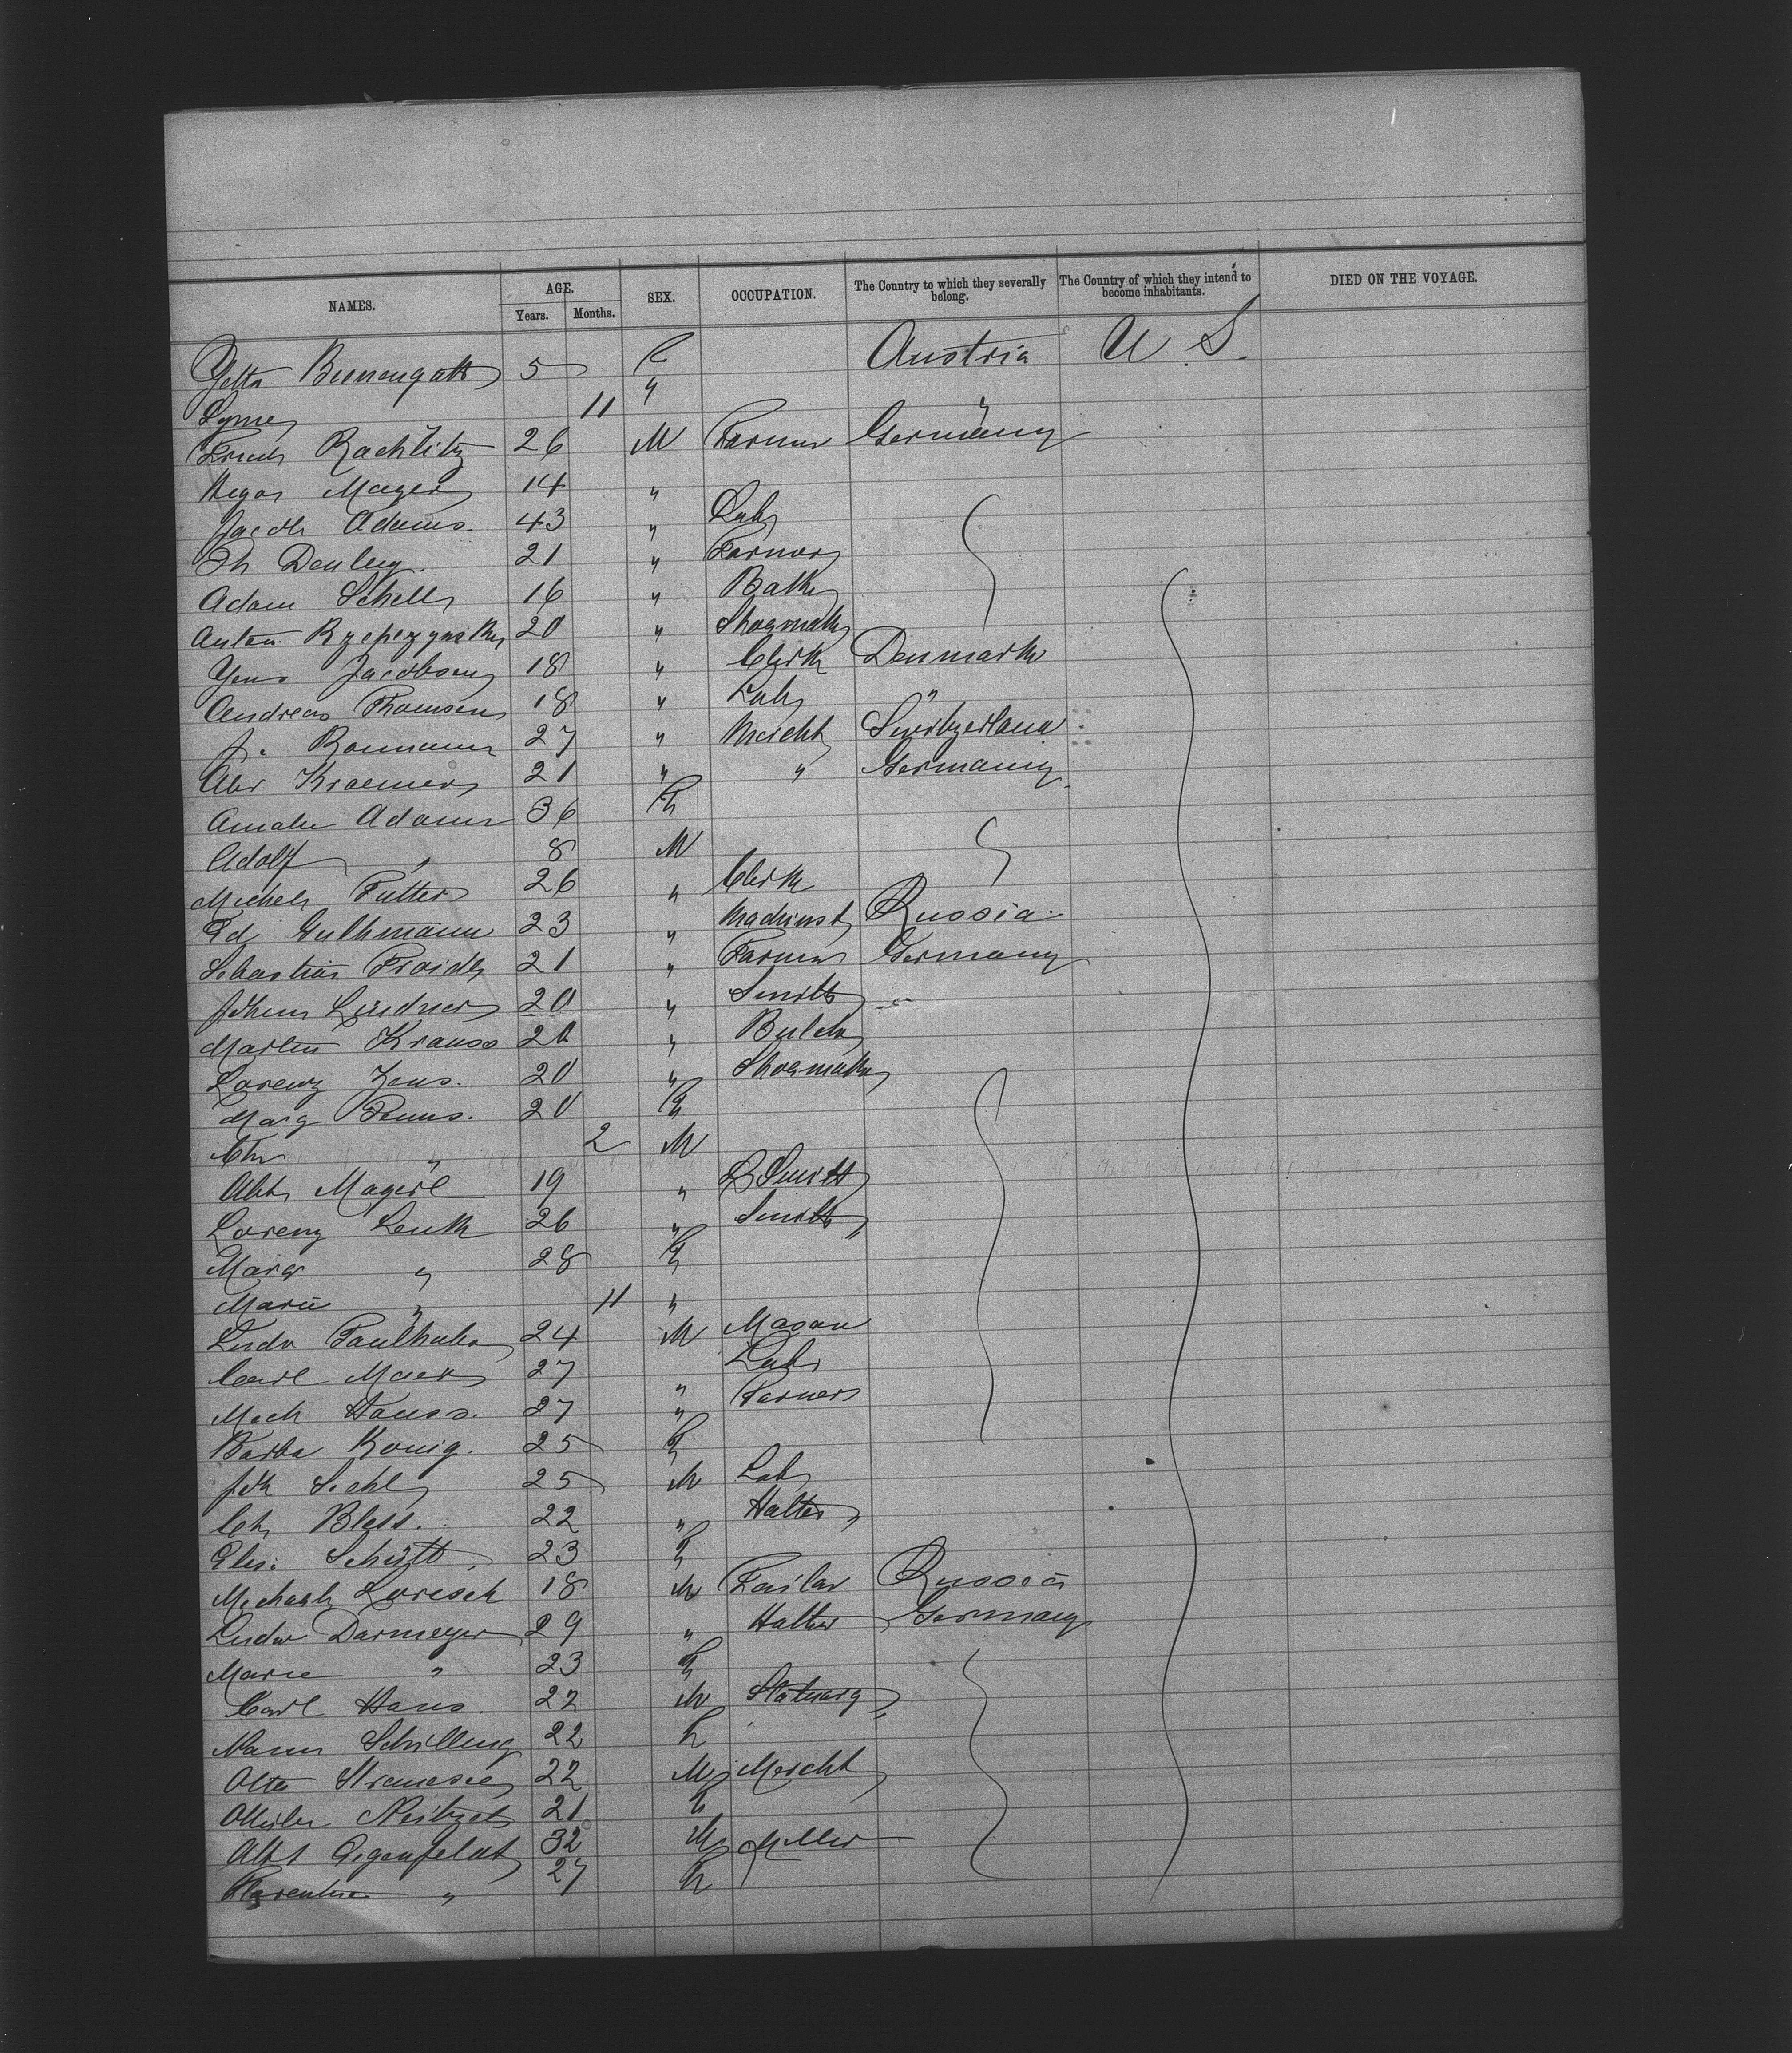 NAMES. AGE. SEX. OCCUPATION. The Country to which they severally belong. The Country of which they intend to become inhabitants. DIED ON THE VOYAGE.
Years. Months.
Yetta 5 F Austria U S.
11 " "
Rachlitz 26 M Farmer Germany
Mayer 14 "
Jacob Adams. 43 " Lab
Th 21 " Farmer
Adam Schell 16 " Bak
Anton 20 " Shoemak
Jens Jacobsen 18 " Clerk Denmark
Andreas Thomsen 18 " Lab "
J. Baumann 27 " Mercht Switzerland
Abr Kraemer 21 " " Germany
Amalie Adams 36 F
Adolf " 8 M
Michel Futter 26 " Clerk
Ed Guthmann 23 " Machinst Russia
Sebastian 21 " Farmer Germany
Johann Lindner 20 " Smith
Martin Krauss 20 " Butch
Lorenz Zeus. 20 " Shoemak
Marg 20 F
Chr " 2 M
Abt Magerl 19 " B Smith
Lorenz Lenk 26 " Smith
Marg " 28 F
Marie " 11 "
Ludv Faulhaber 24 M Mason
Carl Maer 27 " Lab
Mich 27 " Farmer
Barba Konig. 25 F
Joh 25 M Lab
Ch Bless. 22 " Hatter
Elis: Schütt 23 F
Michael 18 M Tailor Russia
Ludw Darmeyer 29 " Hatter Germany
Marie " 23 F
Carl Haus. 22 M Statuary
Schilling 22 F
Otto 22 M Mercht
Neitzel 21 F
Albt 32 M Miller
Florentine " 27 F